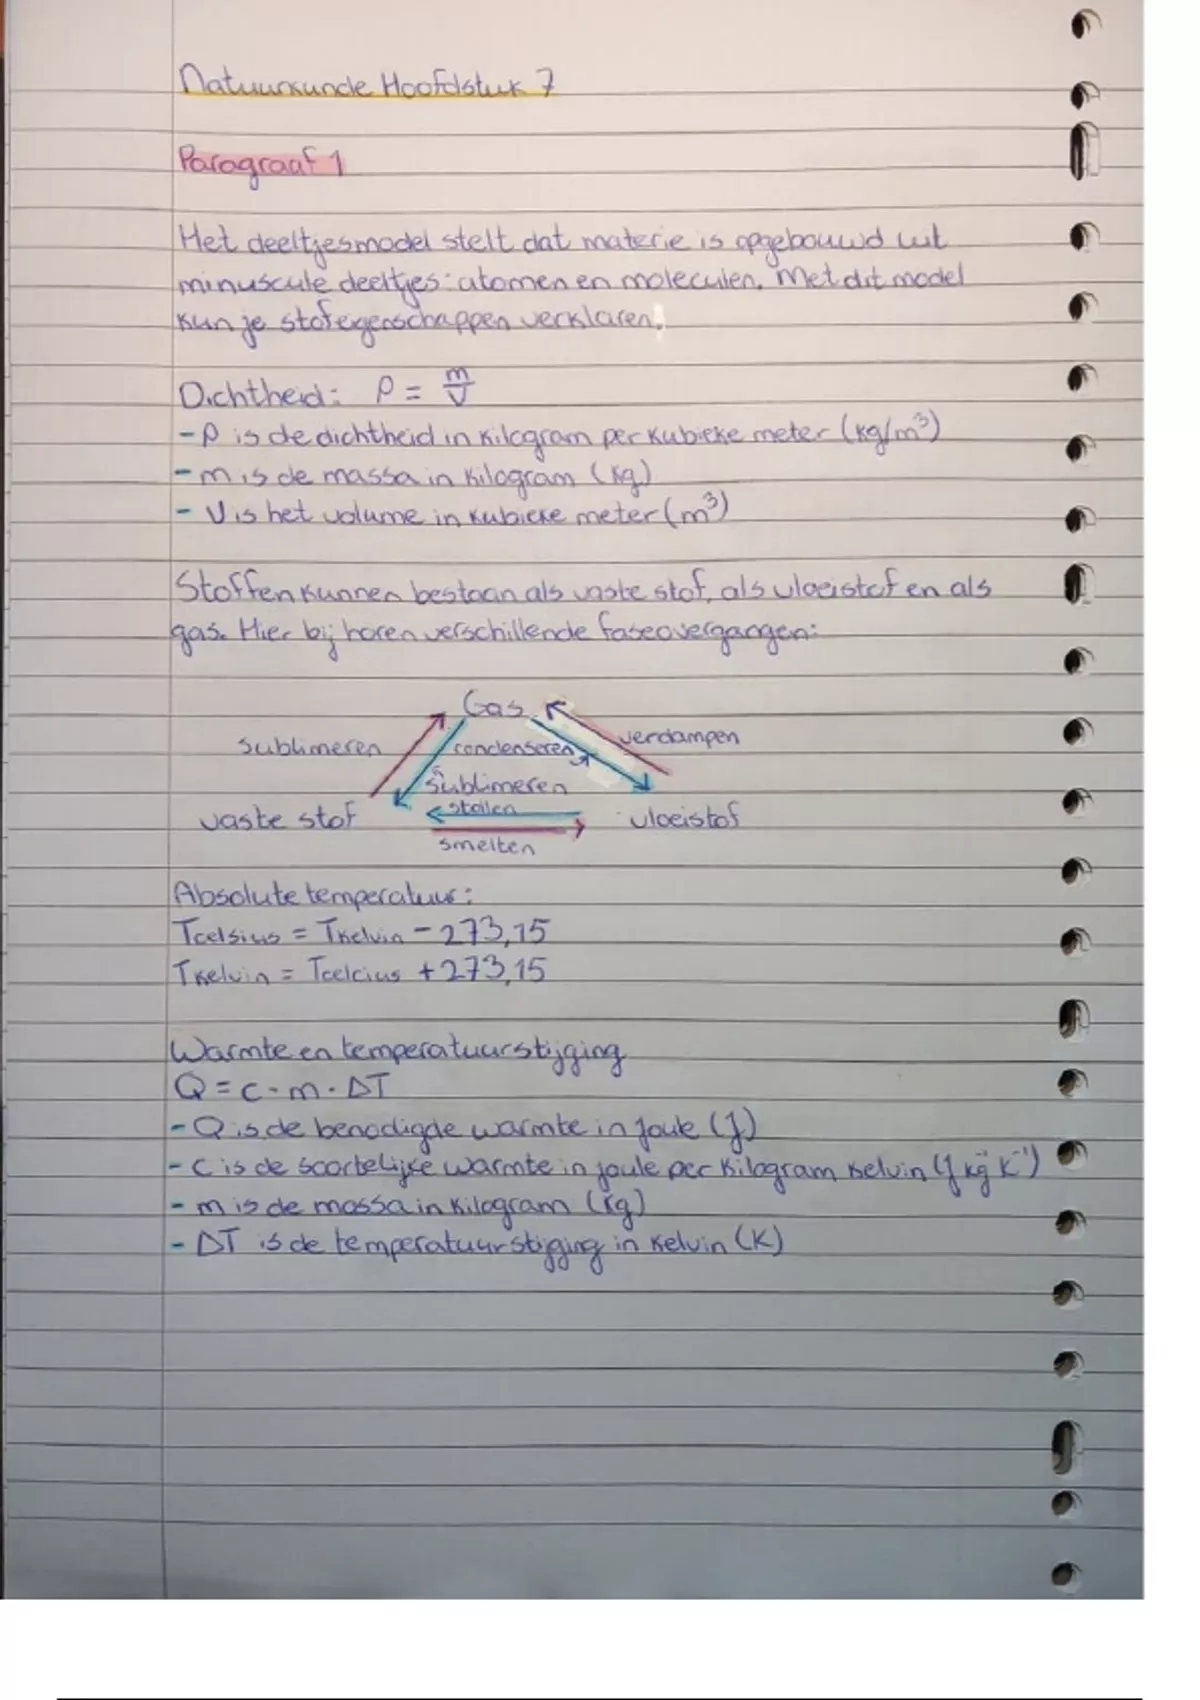 Natuurkunde Hoofdstuk 7
Paragraaf 1
Het deeltjesmodel stelt dat materie is opgebouwd uit
minuscule deeltjes: atomen en moleculen. Met dit model
kun je stofeigenschappen verklaren.
Dichtheid: ρ = m/V
- ρ is de dichtheid in kilogram per kubieke meter (kg/m³)
- m is de massa in kilogram (kg)
- V is het volume in kubieke meter (m³)
Stoffen kunnen bestaan als vaste stof, als vloeistof en als
gas. Hier bij horen verschillende faseovergangen:
Gas
sublimeren condenseren verdampen
sublimeren
vaste stof stollen vloeistof
smelten
Absolute temperatuur:
Tcelsius = Tkelvin - 273,15
Tkelvin = Tcelcius + 273,15
Warmte en temperatuurstijging
Q = c · m · ΔT
- Q is de benodigde warmte in joule (J)
- c is de soortelijke warmte in joule per kilogram kelvin (J kg⁻¹ K⁻¹)
- m is de massa in kilogram (kg)
- ΔT is de temperatuurstijging in kelvin (K)